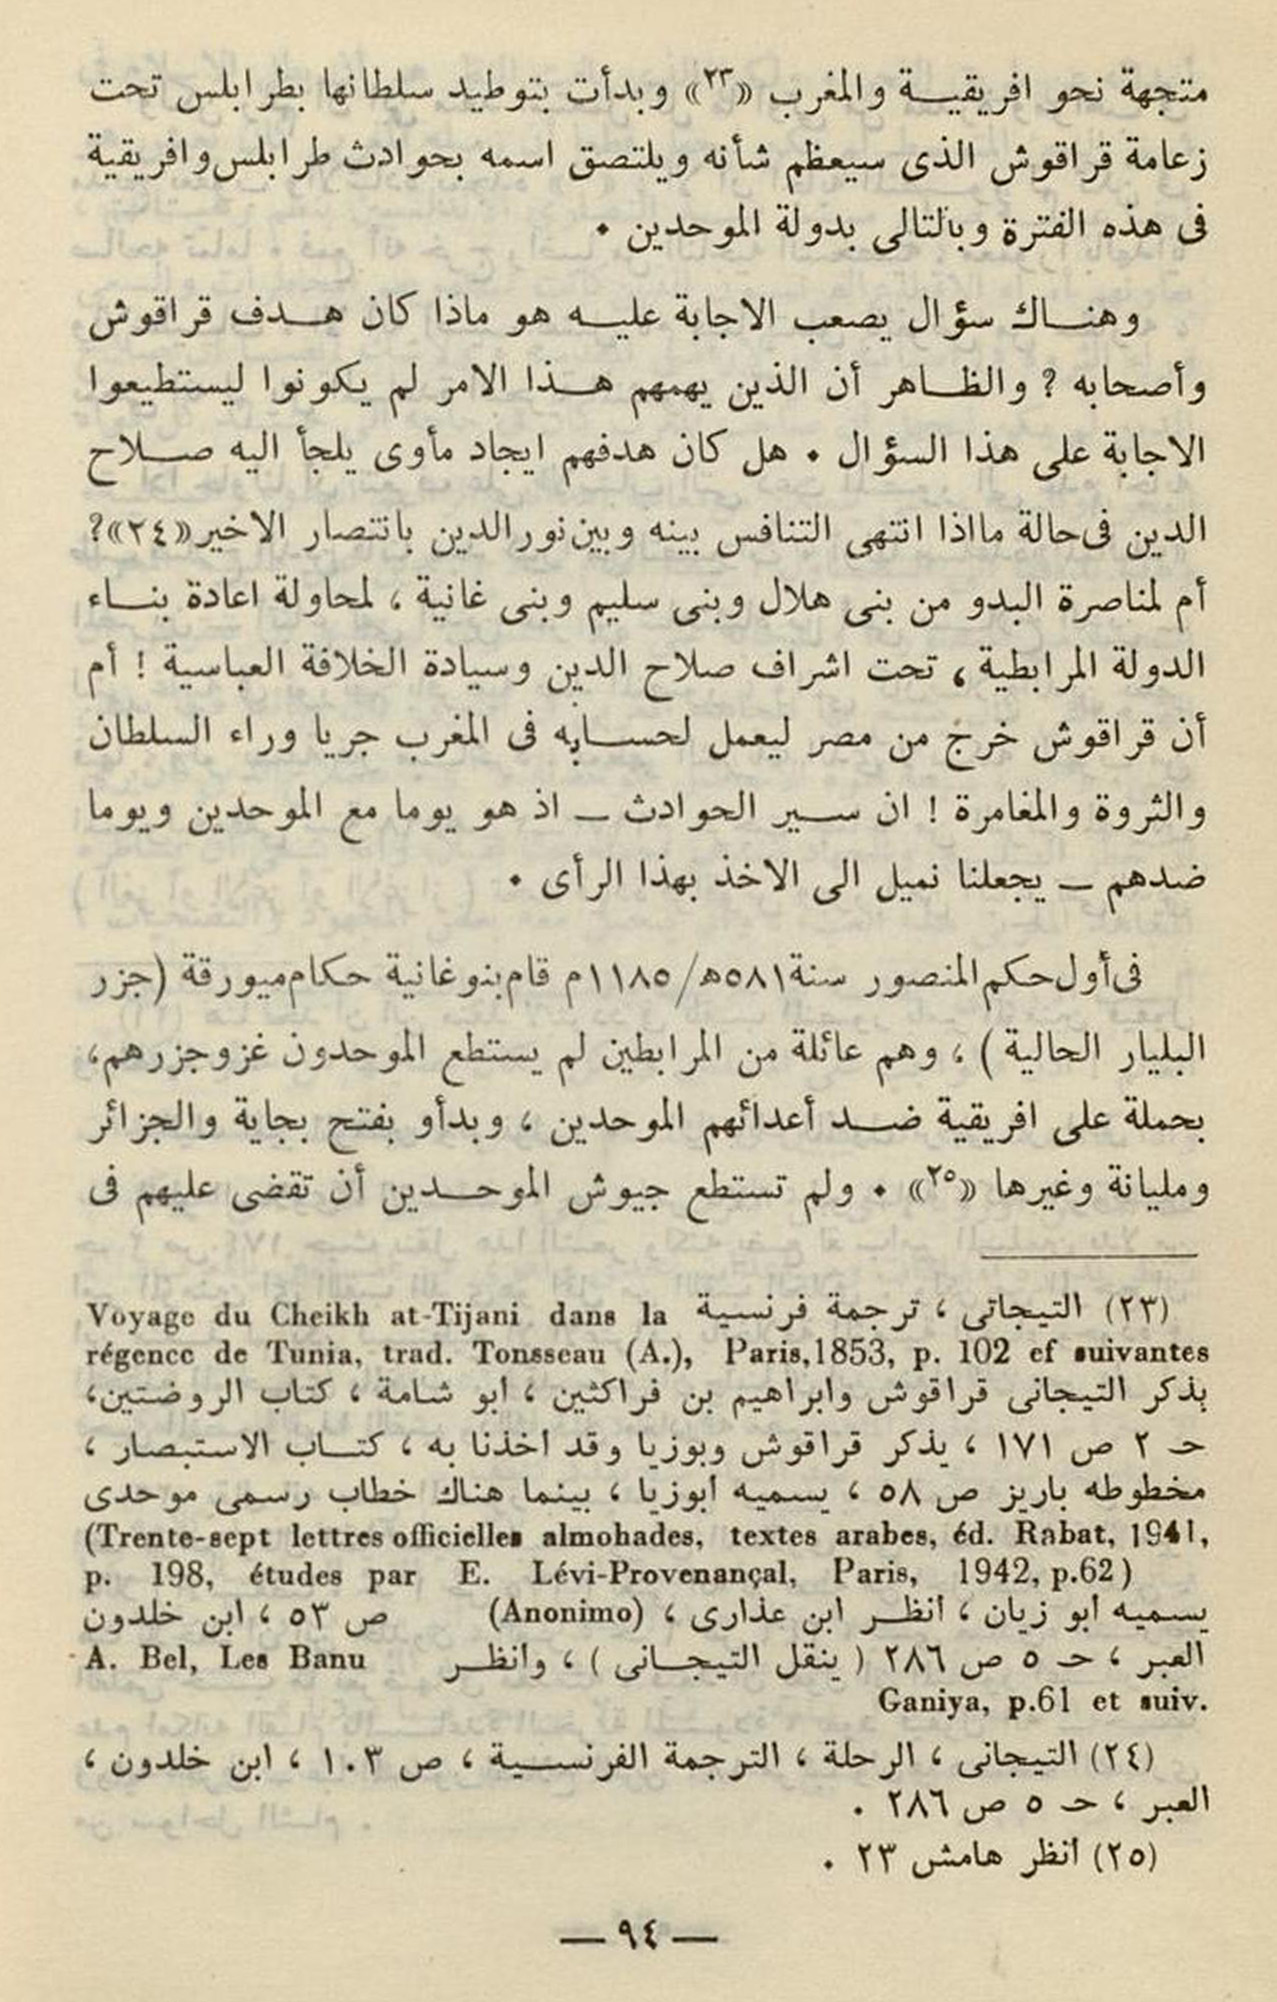 متجهة نحو افريقيـة والمغرب «٢٣» وبدأت بتوطيد سلطانها بطرابلس تحت
زعامة قراقوش الذى سيعظم شأنه ويلتصق اسمه بحوادث طرابلس وافريقية
فى هذه الفترة وبالتالى بدولة الموحدين .
وهنـاك سؤال يصعب الاجابة عليـه هو ماذا كان هـدف قراقوش
وأصحابه ؟ والظـاهر أن الذين يهمهم هـذا الامر لم يكونوا ليستطيعوا
الاجابة على هذا السؤال . هل كان هدفهم ايجاد مأوى يلجأ اليه صـلاح
الدين فى حالة مااذا انتهى التنافس بينه وبين نورالدين بانتصار الاخير«٢٤»؟
أم لمناصرة البدو من بنى هلال وبنى سليم وبنى غانية ، لمحاولة اعادة بنـاء
الدولة المرابطية ، تحت اشراف صلاح الدين وسيادة الخلافة العباسية ! أم
أن قراقوش خرج من مصر ليعمل لحسـابه فى المغرب جريا وراء السلطان
والثروة والمغامرة ! ان سـير الحوادث ـ اذ هو يوما مع الموحدين ويوما
ضدهم ـ يجعلنا نميل الى الاخذ بهذا الرأى .
فى أول حكم المنصور سنة ٥٨١ه/١١٨٥م قام بنوغانية حكام ميورقة (جزر
البليار الحالية ) ، وهم عائلة من المرابطين لم يستطع الموحدون غزوجزرهم،
بحملة على افريقية ضـد أعدائهم الموحدين ، وبدأو بفتح بجاية والجزائر
ومليانة وغيرها «٢٥» . ولم تستطع جيوش الموحـدين أن تقضى عليهم فى
(٢٣) التيجاتى ، ترجمة فرنسية Voyage du Cheikh at-Tijani dans la
régence de Tunia, trad. Tonsseau (A.), Paris,1853, p. 102 ef suivantes
يذكر التيجانى قراقوش وابراهيم بن فراكثين ، ابو شامة ، كتاب الروضتين،
حـ ٢ ص ١٧١ ، يذكر قراقوش وبوزيا وقد اخذنا به ، كتـاب الاستبصار ،
مخطوطه باريز ص ٥٨ ، يسميه ابوزيا ، بينما هناك خطاب رسمى موحدى
(Trente-sept lettres officielles almohades, textes arabes, éd. Rabat, 1941,
p. 198, études par E. Lévi-Provenançal, Paris, 1942, p.62)
يسميه ابو زيان ، انظـر ابن عذارى ، (Anonimo) ص ٥٣ ، ابن خلدون
العبر ، حـ ٥ ص ٢٨٦ ( ينقل التيجـانى ) ، وانظـر A. Bel, Les Banu
Ganiya, p.61 et suiv.
(٢٤) التيجانى ، الرحلة ، الترجمة الفرنسـية ، ص ١٠٣ ، ابن خلدون ،
العبر ، حـ ٥ ص ٢٨٦ .
(٢٥) انظر هامش ٢٣ .
— ٩٤ —